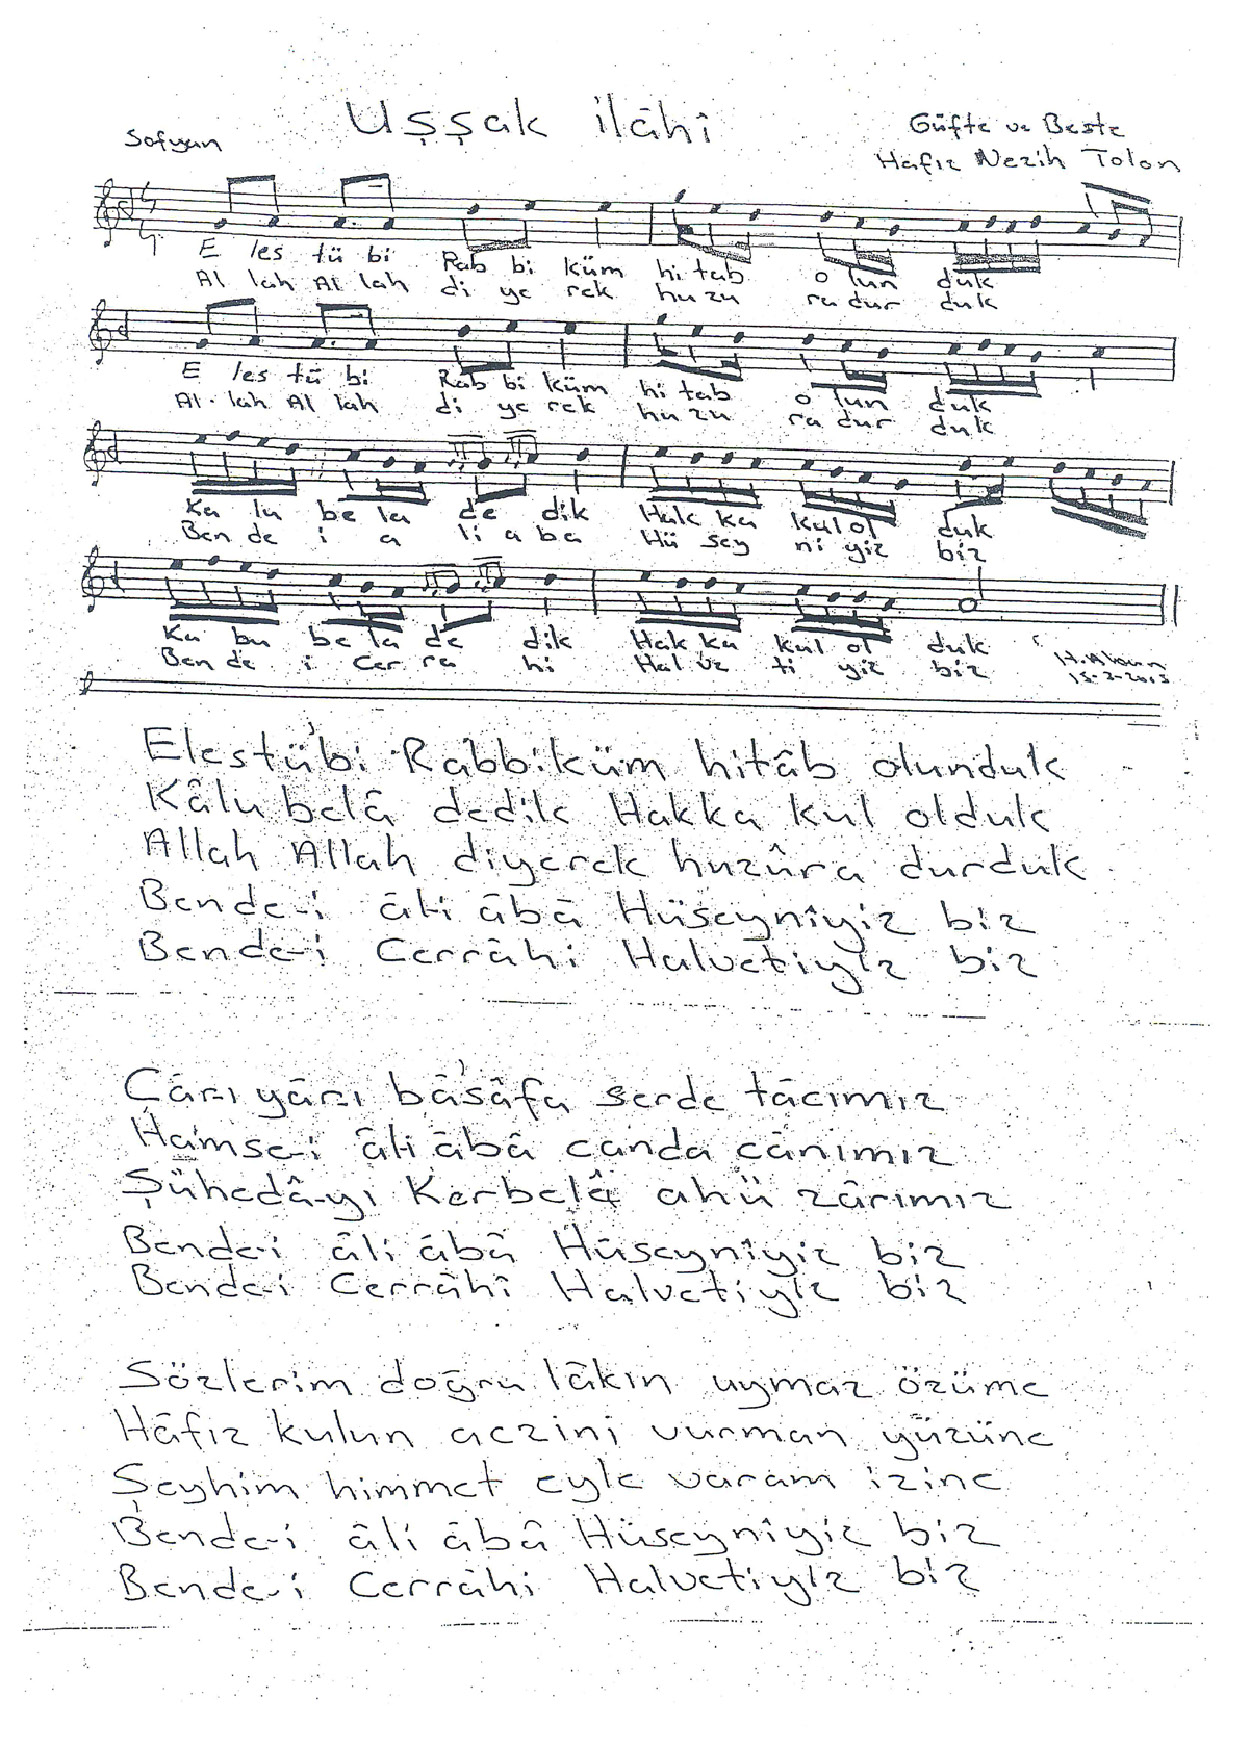 Uşşak ilâhî
Sofyan
Güfte ve Beste
Hafız Nezih Tolon
E les tü bi Rab bi küm hi tab o lun duk
Al lah Al lah di ye rek hu zu ra dur duk
E les tü bi Rab bi küm hi tab o lun duk
Al lah Al lah di ye rek hu zu ra dur duk
Ka lu be la de dik Hak ka kul ol duk
Ben de i a li a ba Hü sey ni yiz biz
Ka bu be la de dik Hak ka kul ol duk
Ben de i Cer ra hi Hal ve ti yiz biz
15-3-2013
Elestübi Rabbiküm hitâb olunduk
Kâlu belâ dedik Hakka kul olduk
Allah Allah diyerek huzûra durduk
Bende-i âl-i âbâ Hüseynîyiz biz
Bende-i Cerrâhi Halvetiyiz biz
Cârı yârı bâsâfa serde tâcımız
Hamse-i âli âbâ canda cânımız
Şühedâ-yı Kerbelâ ahü zârımız
Bende-i âli âbâ Hüseynîyiz biz
Bende-i Cerrâhî Halvetiyiz biz
Sözlerim doğru lâkin uymaz özüme
Hâfız kulun aczini vurman yüzüne
Şeyhim himmet eyle varam izine
Bende-i âli âbâ Hüseynîyiz biz
Bende-i Cerrâhi Halvetiyiz biz